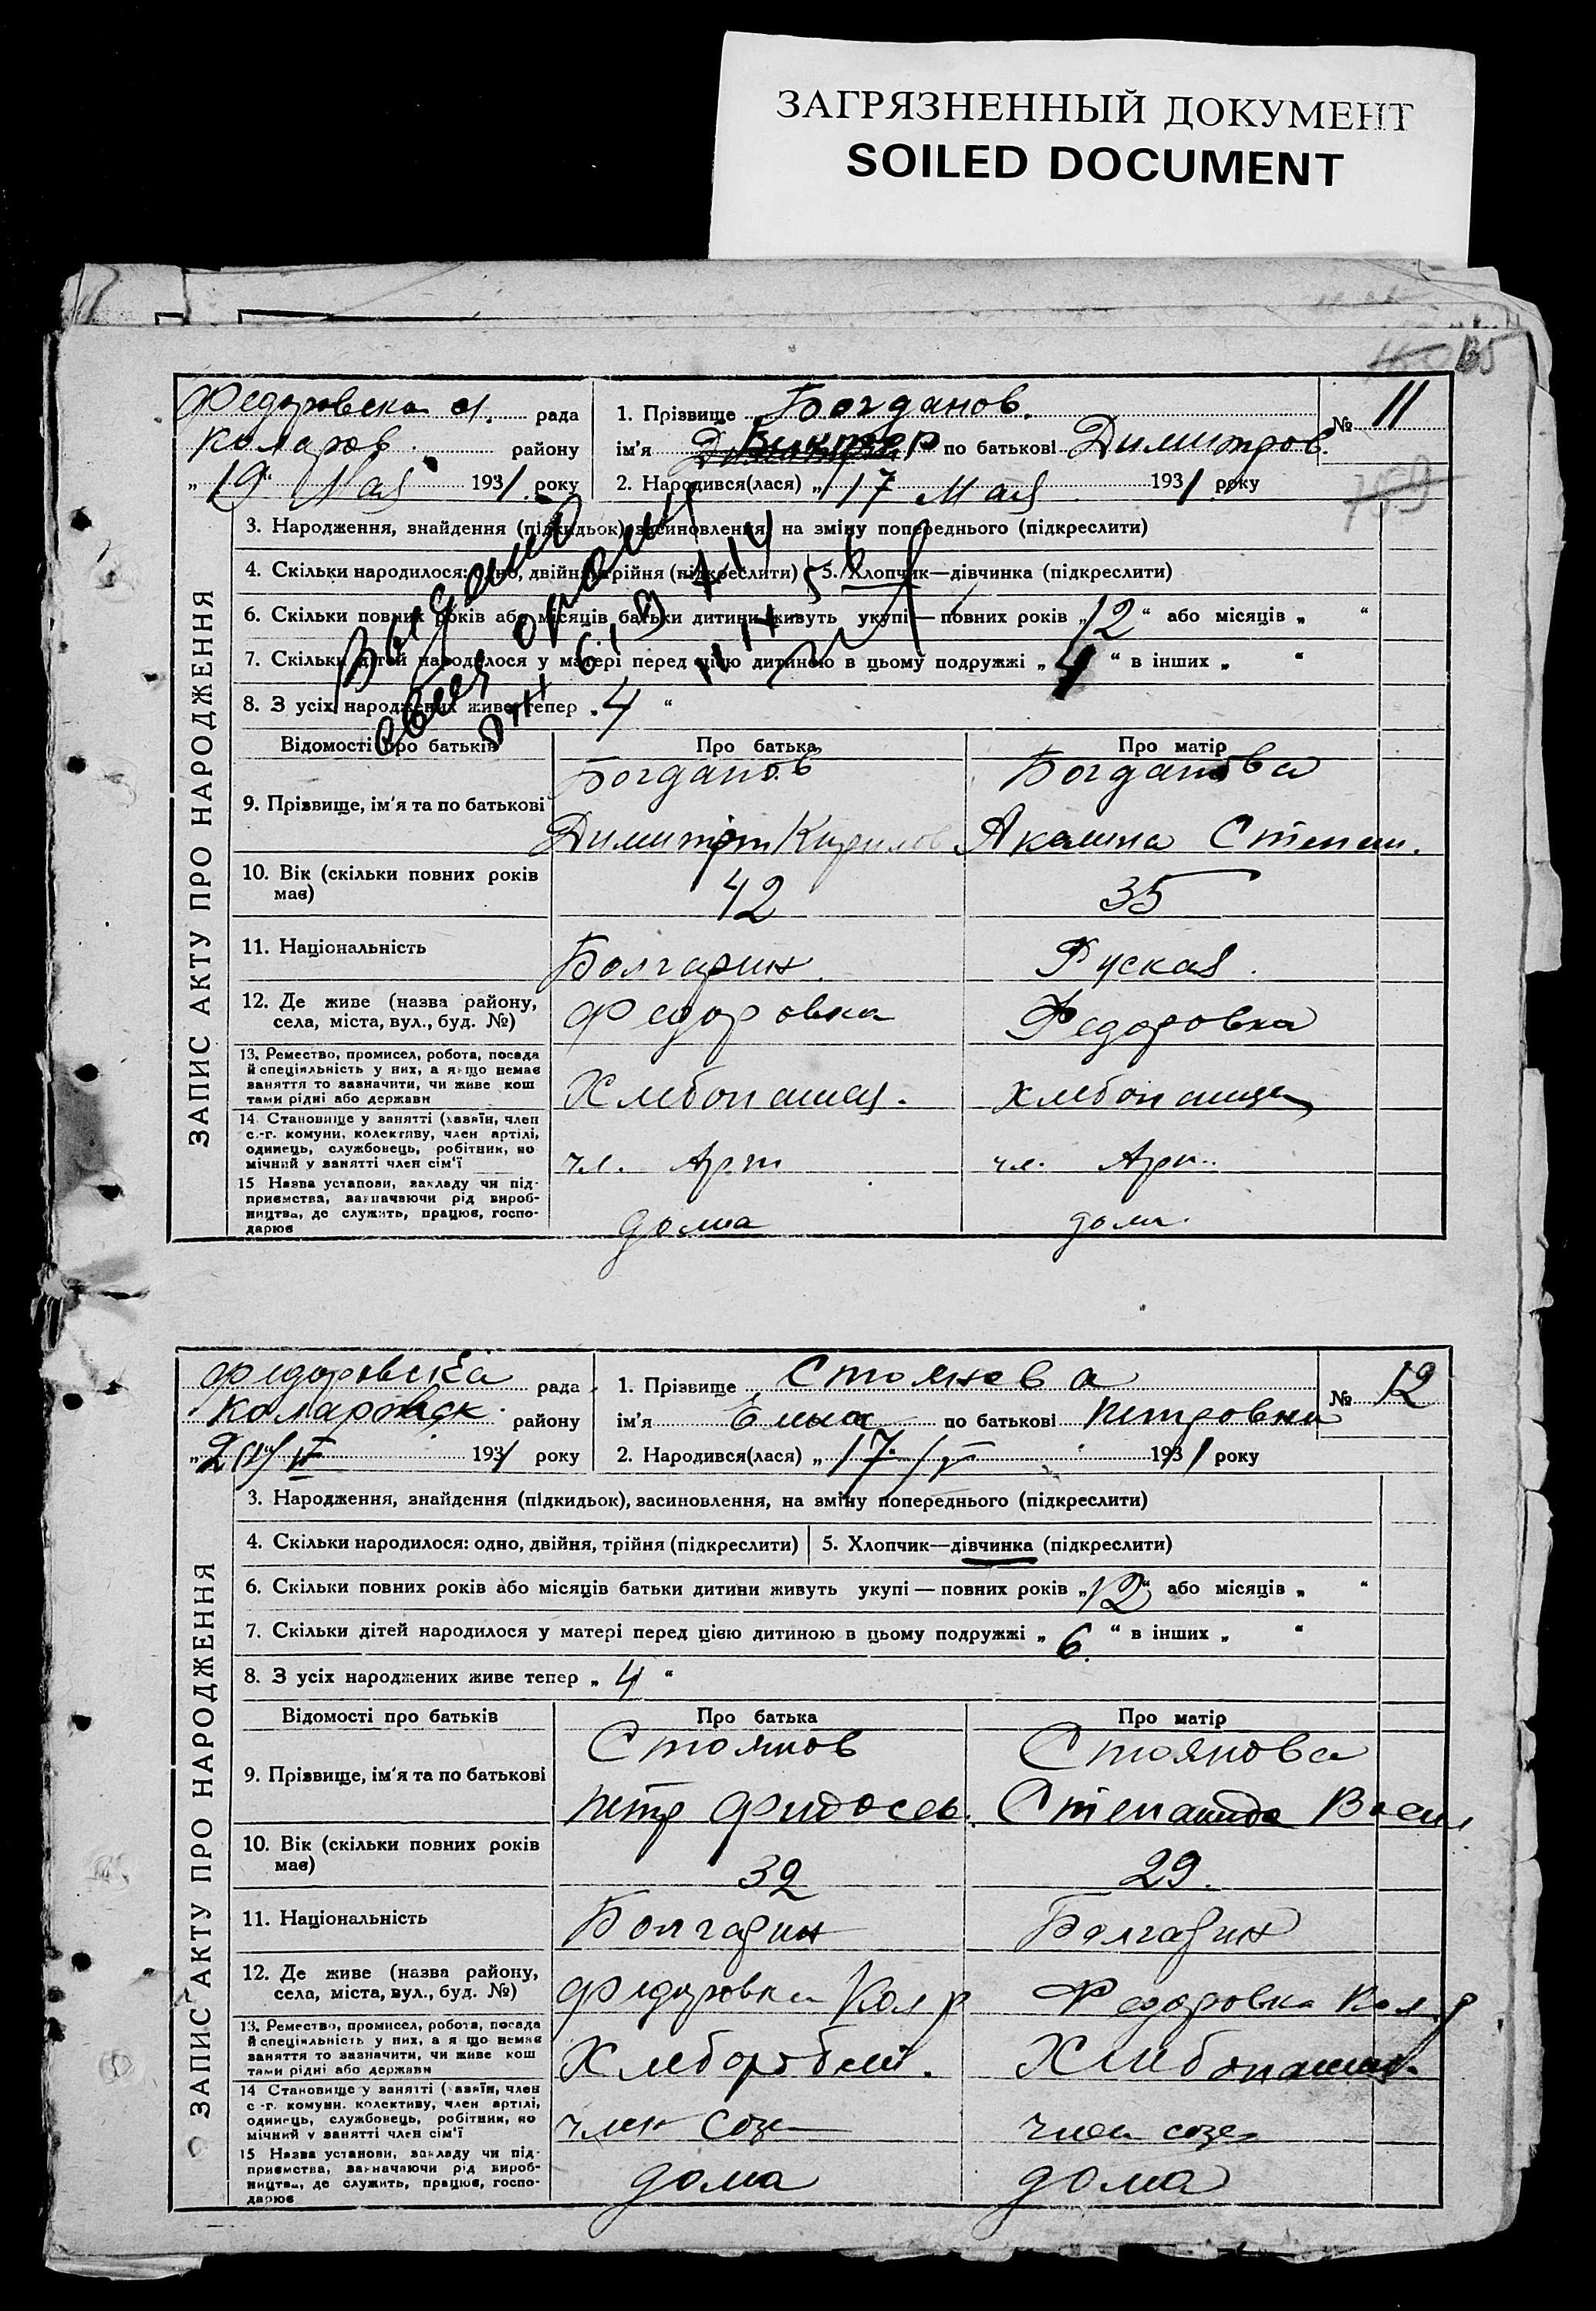 ЗАГРЯЗНЕННЫЙ ДОКУМЕНТ
SOILED DOCUMENT
135
ЗАПИС АКТУ ПРО НАРОДЖЕННЯ
Федоровска рада
Коларов. району
„19“ Мая 1931 року
1. Прізвище Богданов.
ім'я Виктор по батькові Димитров.
№ 11
2. Народився(лася) „17 Мая 1931 року
3. Народження, знайдення (підкидьок), засиновлення, на зміну попереднього (підкреслити)
4. Скільки народилося: одно, двійня, трійня (підкреслити) 5. Хлопчик—дівчинка (підкреслити)
6. Скільки повних років або місяців батьки дитини живуть укупі — повних років „12“ або місяців „ “
7. Скільки дітей народилося у матері перед цією дитиною в цьому подружжі „4“ в інших „ “
8. З усіх народжених живе тепер „4“
Выдано
Відомості про батьків Про батька Про матір
9. Прізвище, ім'я та по батькові
Богданов Богданова
Димитрт Кирилов Акамина Степан.
10. Вік (скільки повних років має) 42 35
11. Національність Болгарин. Руская.
12. Де живе (назва району, села, міста, вул., буд. №) Федоровка Федоровка
13. Ремество, промисел, робота, посада
й спеціяльність у них, а якщо немає
заняття то зазначити, чи живе кош
тами рідні або держави
Хлебопашец. Хлебопашец
14 Становище у занятті (хазяїн, член
с.-г. комуни, колективу, член артілі,
одинець, службовець, робітник, по
мічний у занятті член сім'ї
чл. Арт чл. Арт.
15 Назва установи, закладу чи під-
приємства, зазначаючи рід вироб-
ництва, де служить, працює, госпо-
дарює
дома дом.
ЗАПИС АКТУ ПРО НАРОДЖЕННЯ
Федоровска рада
Коларовск. району
1931 року
1. Прізвище Стоянова
ім'я Елена по батькові Петровна
№ 12
2. Народився(лася) „17/V 1931 року
3. Народження, знайдення (підкидьок), засиновлення, на зміну попереднього (підкреслити)
4. Скільки народилося: одно, двійня, трійня (підкреслити) 5. Хлопчик—дівчинка (підкреслити)
6. Скільки повних років або місяців батьки дитини живуть укупі — повних років „12“ або місяців „ “
7. Скільки дітей народилося у матері перед цією дитиною в цьому подружжі „6.“ в інших „ “
8. З усіх народжених живе тепер „4“
Відомості про батьків Про батька Про матір
9. Прізвище, ім'я та по батькові
Стоянов Стоянова
Петр Фидосев. Степанида Васил
10. Вік (скільки повних років має) 32 29.
11. Національність Болгарин Болгарин
12. Де живе (назва району, села, міста, вул., буд. №) Федоровка Кол р Федоровка Кол р
13. Ремество, промисел, робота, посада
й спеціяльність у них, а якщо немає
заняття то зазначити, чи живе кош
тами рідні або держави
Хлебороб. Хлибопашец.
14 Становище у занятті (хазяїн, член
с.-г. комуни, колективу, член артілі,
одинець, службовець, робітник, по
мічний у занятті член сім'ї
член соз член соз
15 Назва установи, закладу чи під-
приємства, зазначаючи рід вироб-
ництва, де служить, працює, госпо-
дарює
дома дома